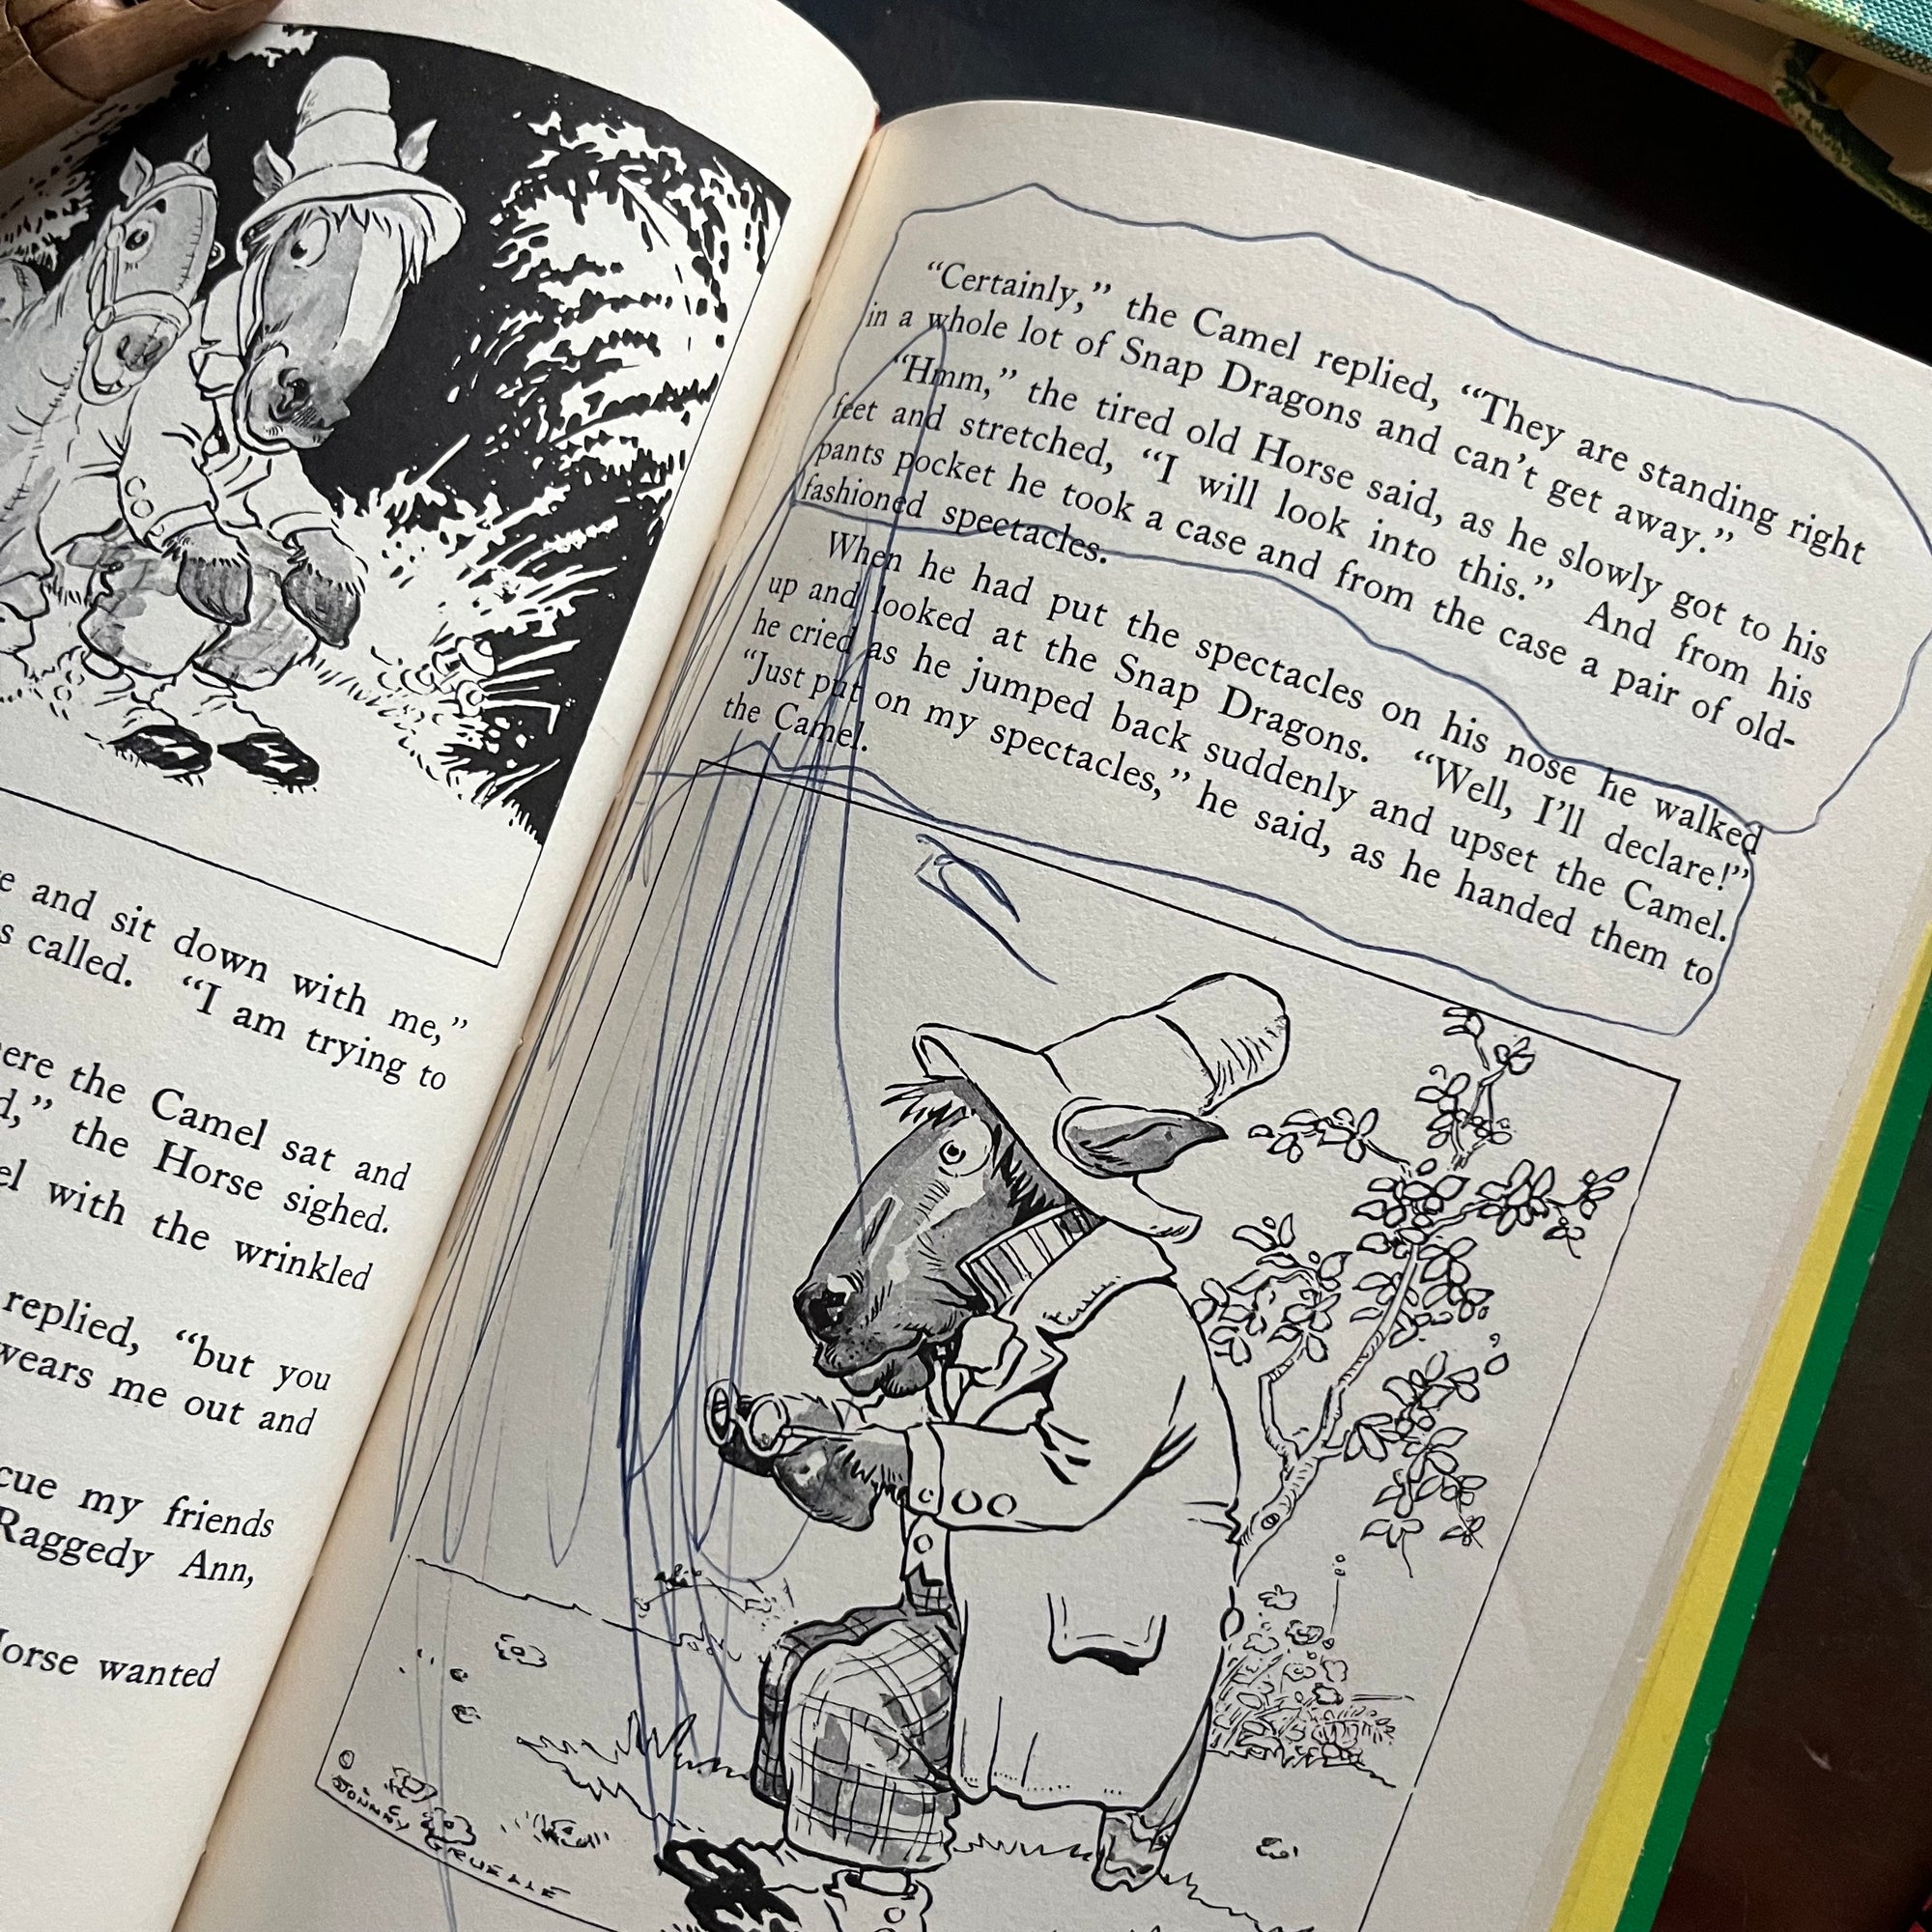 e and sit down with me,”
s called. “I am trying to
ere the Camel sat and
d,” the Horse sighed.
el with the wrinkled
replied, “but you
wears me out and
cue my friends
Raggedy Ann,
Horse wanted
“Certainly,” the Camel replied, “They are standing right
in a whole lot of Snap Dragons and can’t get away.”
“Hmm,” the tired old Horse said, as he slowly got to his
feet and stretched, “I will look into this.” And from his
pants pocket he took a case and from the case a pair of old-
fashioned spectacles.
When he had put the spectacles on his nose he walked
up and looked at the Snap Dragons. “Well, I’ll declare!”
he cried as he jumped back suddenly and upset the Camel.
“Just put on my spectacles,” he said, as he handed them to
the Camel.
© JOHNNY GRUELLE